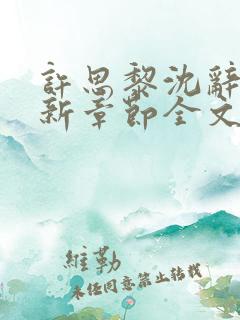 許思黎沈辭
新章節全文
維勒
未任同意禁止轉載